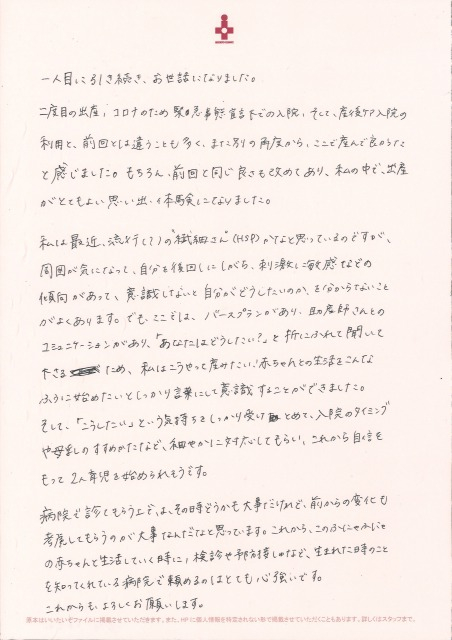 一人目に引き続き、お世話になりました。
二度目の出産、コロナのため緊急事態宣言下での入院、そして、産後ケア入院の
利用と、前回とは違うことも多く、また別の角度から、ここで産んで良かった
と感じました。もちろん、前回と同じ良さも改めてあり、私の中で、出産
がとてもよい思い出・体験になりました。
私は最近、流行(?)の"繊細さん"(HSP)かなと思っているのですが、
周囲が気になって、自分を後回しにしがち、刺激に敏感などの
傾向があって、意識しないと自分がどうしたいのか、を分からないこと
がよくあります。でも、ここでは、バースプランがあり、助産師さんとの
コミュニケーションがあり、「あなたはどうしたい?」と折にふれて聞いて
下さる ため、私はこうやって産みたい!赤ちゃんとの生活をこんな
ふうに始めたいとしっかり言葉にして意識することができました。
そして、「こうしたい」という気持ちをしっかり受けとめて、入院のタイミング
や母乳のすすめかたなど、細やかに対応してもらい、これから自信を
もって2人育児を始められそうです。
病院で診てもらう上で、よ、その時どうかも大事だけれど、前からの変化も
考慮してもらうのが大事なんだなと思っています。これから、このふにゃふにゃ
の赤ちゃんと生活していく時に、検診や予防接種など、生まれた時のこと
を知ってくれている病院で頼めるのはとても心強いです。
これからもよろしくお願いします。
原本はいいたいぞファイルに掲載させていただきます。また、HPに個人情報を特定されない形で掲載させていただくこともあります。詳しくはスタッフまで。